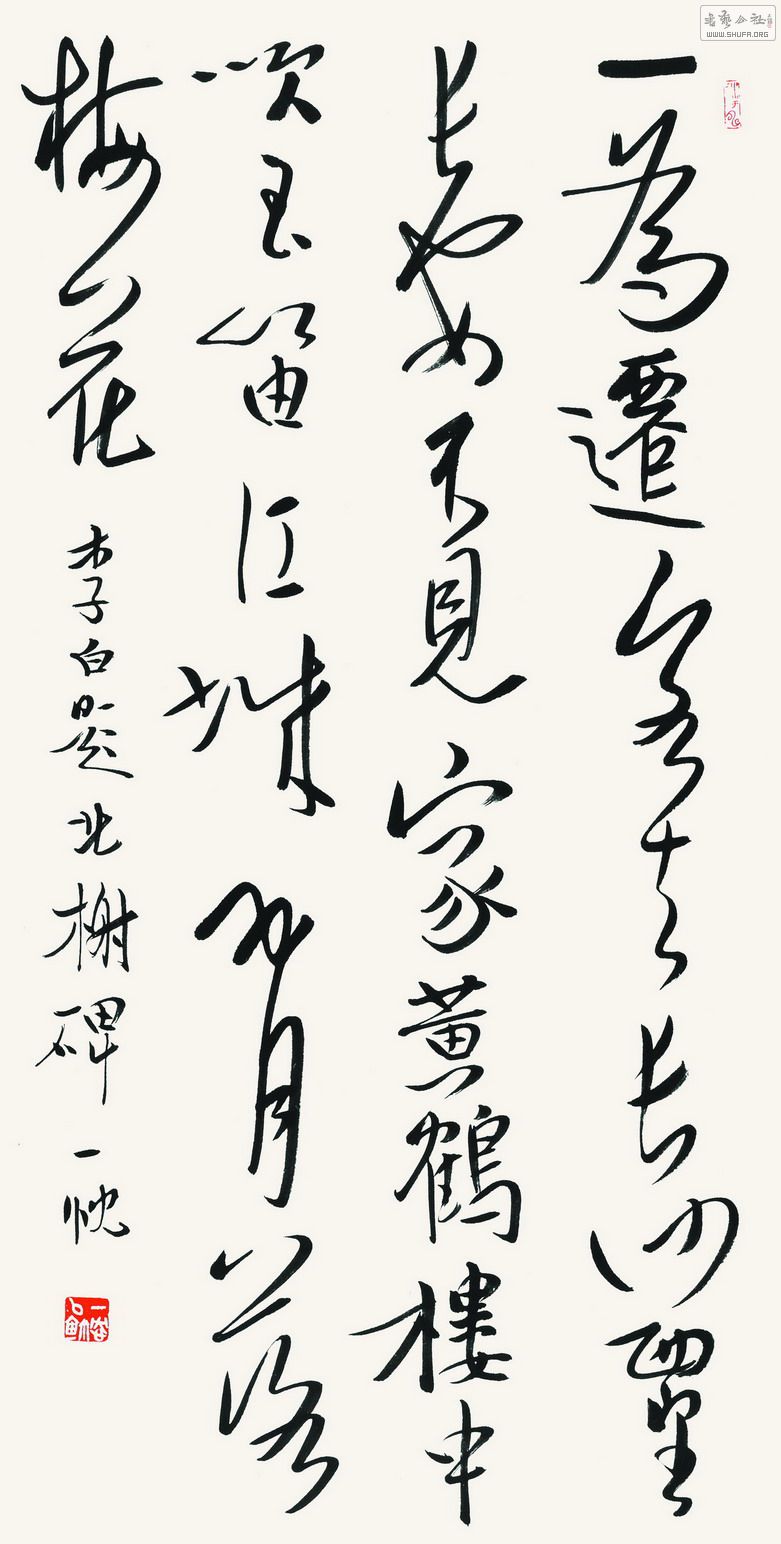 書藝公社
WWW.SHUFA.ORG
一為遷客去長沙西望
長安不見家黃鶴樓中
吹玉笛江城五月落
梅花
李白題北榭碑 一忱